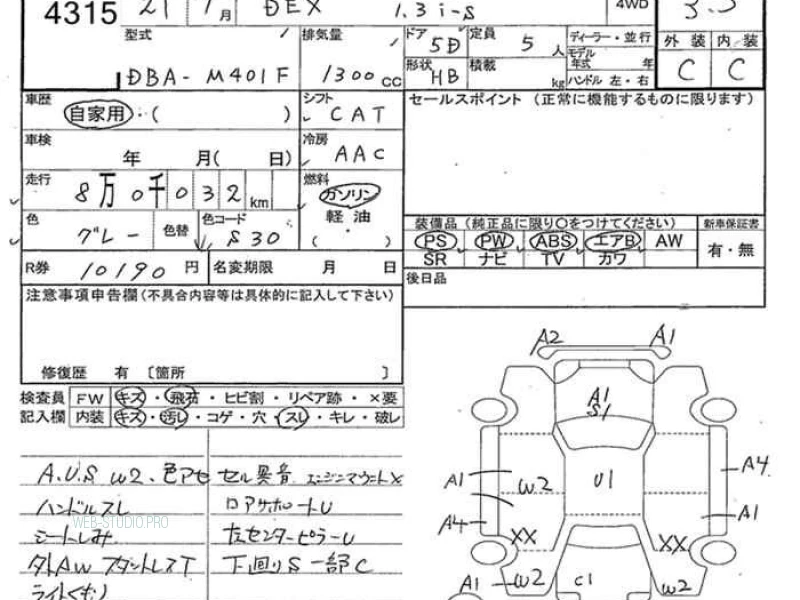 4315 21 1月 DEX 1.3 i-S 4WD 3.5
型式 排気量 ドア 5D 定員 5人 ディーラー・並行 外装 内装
モデル年式 年
DBA-M401F 1300cc 形状 HB 積載 kg ハンドル 左・右 C C
車歴 自家用・( ) シフト CAT セールスポイント(正常に機能するものに限ります)
車検 年 月( 日) 冷房 AAC
走行 8万0千032km 燃料 ガソリン
軽油
( ・ )
色 グレー 色替 色コード S30
装備品(純正品に限り○をつけてください) 新車保証書
PS PW ABS エアB AW 有・無
SR ナビ TV カワ
R券 10190円 名変期限 月 日
後日品
注意事項申告欄(不具合内容等は具体的に記入して下さい)
修復歴 有 〔箇所 〕
検査員 FW キズ・飛石・ヒビ割・リペア跡・×要
記入欄 内装 キズ・汚し・コゲ・穴・スレ・キレ・破レ
A.U.S W2、色アセ
ハンドルスレ
WEB-STUDIO.PRO
シートしみ
外AW スタットレスT
ライトくもり
セル異音 エンジンマウントX
ロアサポートU
左センターピラーU
下廻りS 一部C
A2 A1
A1
S1
A1 W2 U1 A4
A4 A1
XX XX
A1 W2 C1 W2